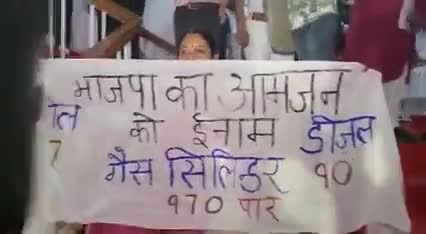 भाजपा का आमजन
को ईनाम डीजल
7 गैस सिलिंडर 90
970 पार